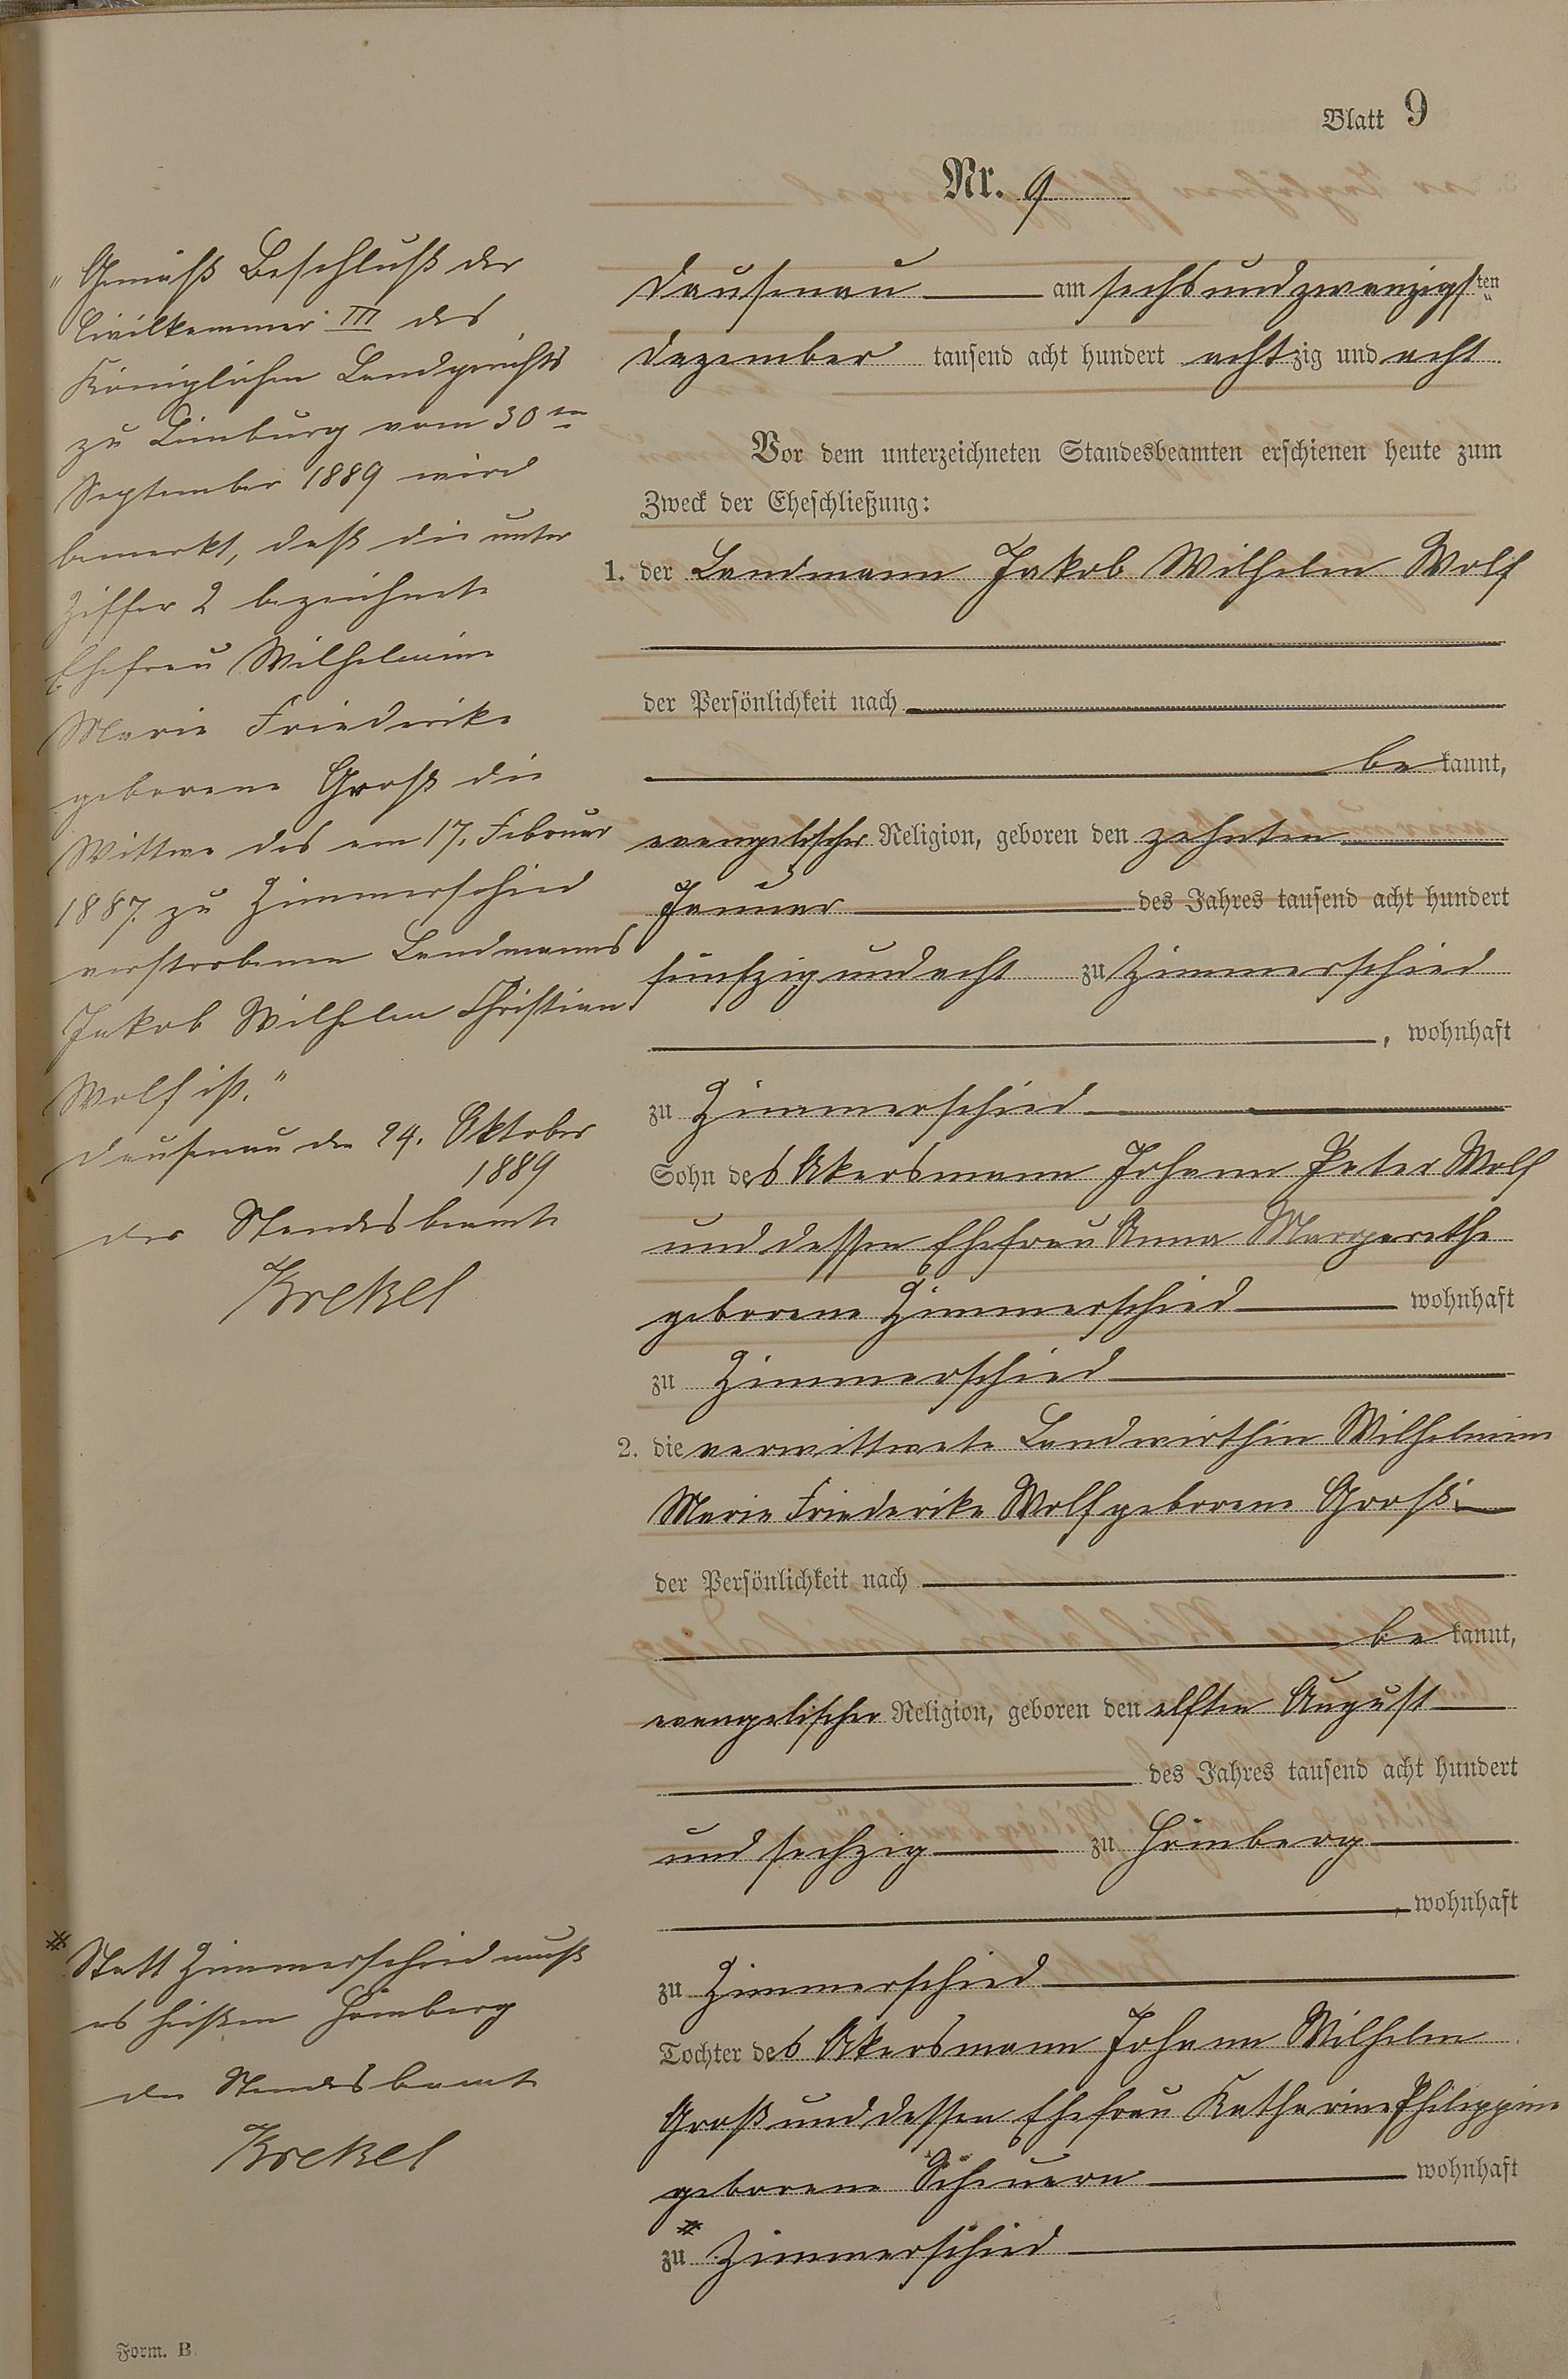 Blatt 9
Nr. 9
Dausenau am sechsundzwanzigsten
Dezember tausend acht hundert achtzig und acht
Vor dem unterzeichneten Standesbeamten erschienen heute zum
Zweck der Eheschließung:
1. der Landmann Jakob Wilhelm Wolf
der Persönlichkeit nach
be kannt,
evangelischer Religion, geboren den zehnten
Januar des Jahres tausend acht hundert
fünfzig und acht zu Zimmerschied
, wohnhaft
zu Zimmerschied
Sohn des Akersmann Johann Peter Wolf
und dessen Ehefrau Anna Margarethe
geborene Zimmerschied wohnhaft
zu Zimmerschied
2. die verwittwete Landwirthin Wilhelmine
Marie Friederike Wolf geborene Groß
der Persönlichkeit nach
be kannt,
evangelischer Religion, geboren den elften August
des Jahres tausend acht hundert
und sechzig zu Hömberg
, wohnhaft
zu Zimmerschied
Tochter des Akersmann Johann Wilhelm
Groß und dessen Ehefrau Katharine Philippine
geborene Scheuern wohnhaft
zu Zimmerschied
"Gemäß Beschluß der
Civilkammer III des
Königlichen Landgerichts
zu Limburg vom 30ten
September 1889 wird
bemerkt, daß die unter
Ziffer 2 bezeichnete
Ehefrau Wilhelmine
Marie Friederike
geborene Groß die
Wittwe des am 17. Februar
1887 zu Zimmerschied
verstorbenen Landmanns
Jakob Wilhelm Christian
Wolf ist."
Dausenau den 24. Oktober
1889
Der Standesbeamte
Krekel
Statt Zimmerschied muß
es heißen Hömberg
Der Standesbeamte
Krekel
Form. B.